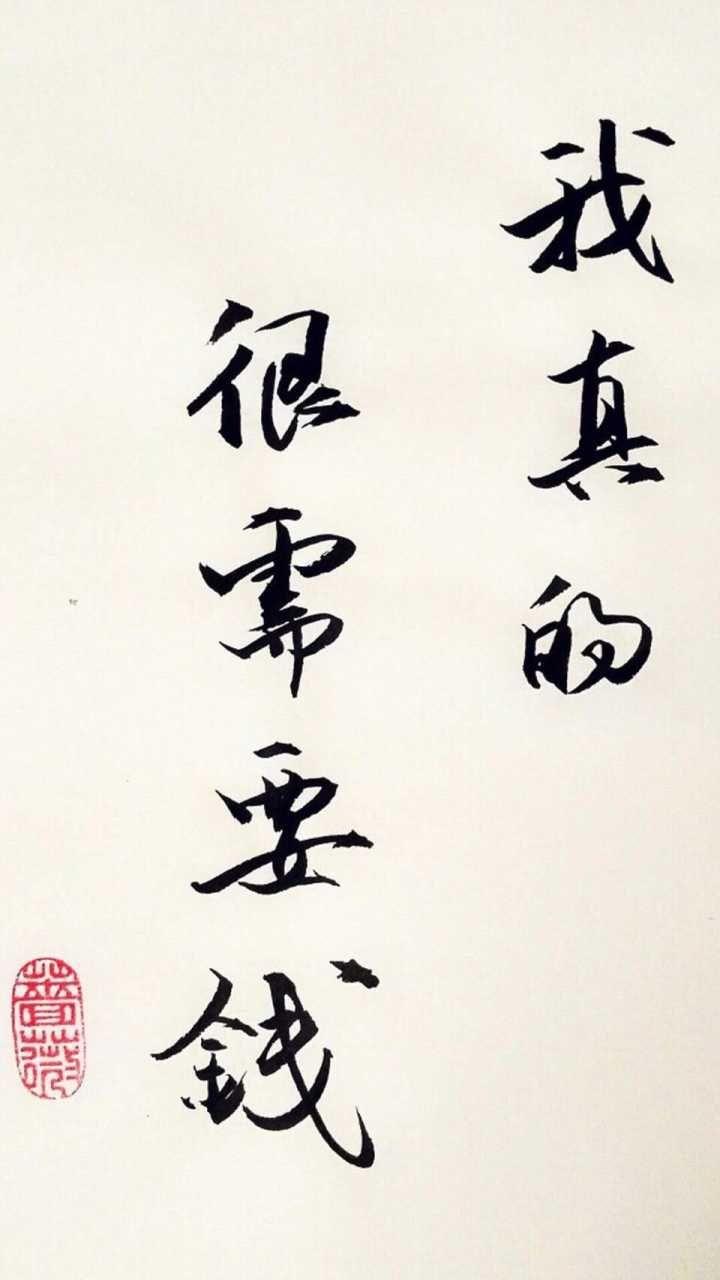 我真的
很需要钱